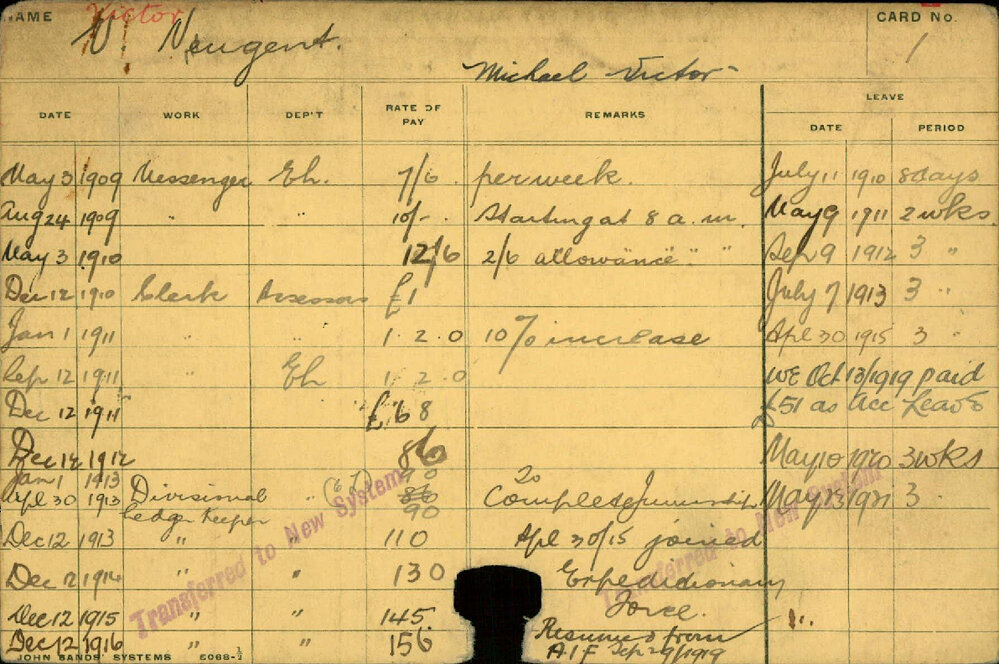 NAME Victor CARD No.
V. Neugent. 1
Michael Victor
LEAVE
DATE WORK DEP'T RATE OF PAY REMARKS DATE PERIOD
May 3 1909 Messenger Eh. 7/6 per week. July 11 1910 8 days
Aug 24 1909 " " 10/- Starting at 8 a.m. May 9 1911 2 wks
May 3 1910 12/6 2/6 allowance " " Sep 9 1912 3 "
Dec 12 1910 Clerk Assessors £1 July 7 1913 3 "
Jan 1 1911 " " 1. 2. 0 10% increase Apl 30 1915 3 "
Sep 12 1911 " Eh 1. 2. 0 WE Oct 13/1919 paid
Dec 12 1911 " £68 £51 as Acc Leave
Dec 12 1912 86 May 10 1920 3 wks
Jan 1 1913 90 To
Apl 30 1913 Divisional " 86 Complete May 23 1921 3 "
Ledger Keeper 90
Dec 12 1913 " " 110 Apl 30/15 joined
Dec 12 1914 " " 130 Expeditionary
Force.
Dec 12 1915 " " 145.
Dec 12 1916 " " 156 Resumed from
A.I.F Sep 29/1919
Transferred to New System
Transferred to New System
JOHN SANDS' SYSTEMS 6068-½